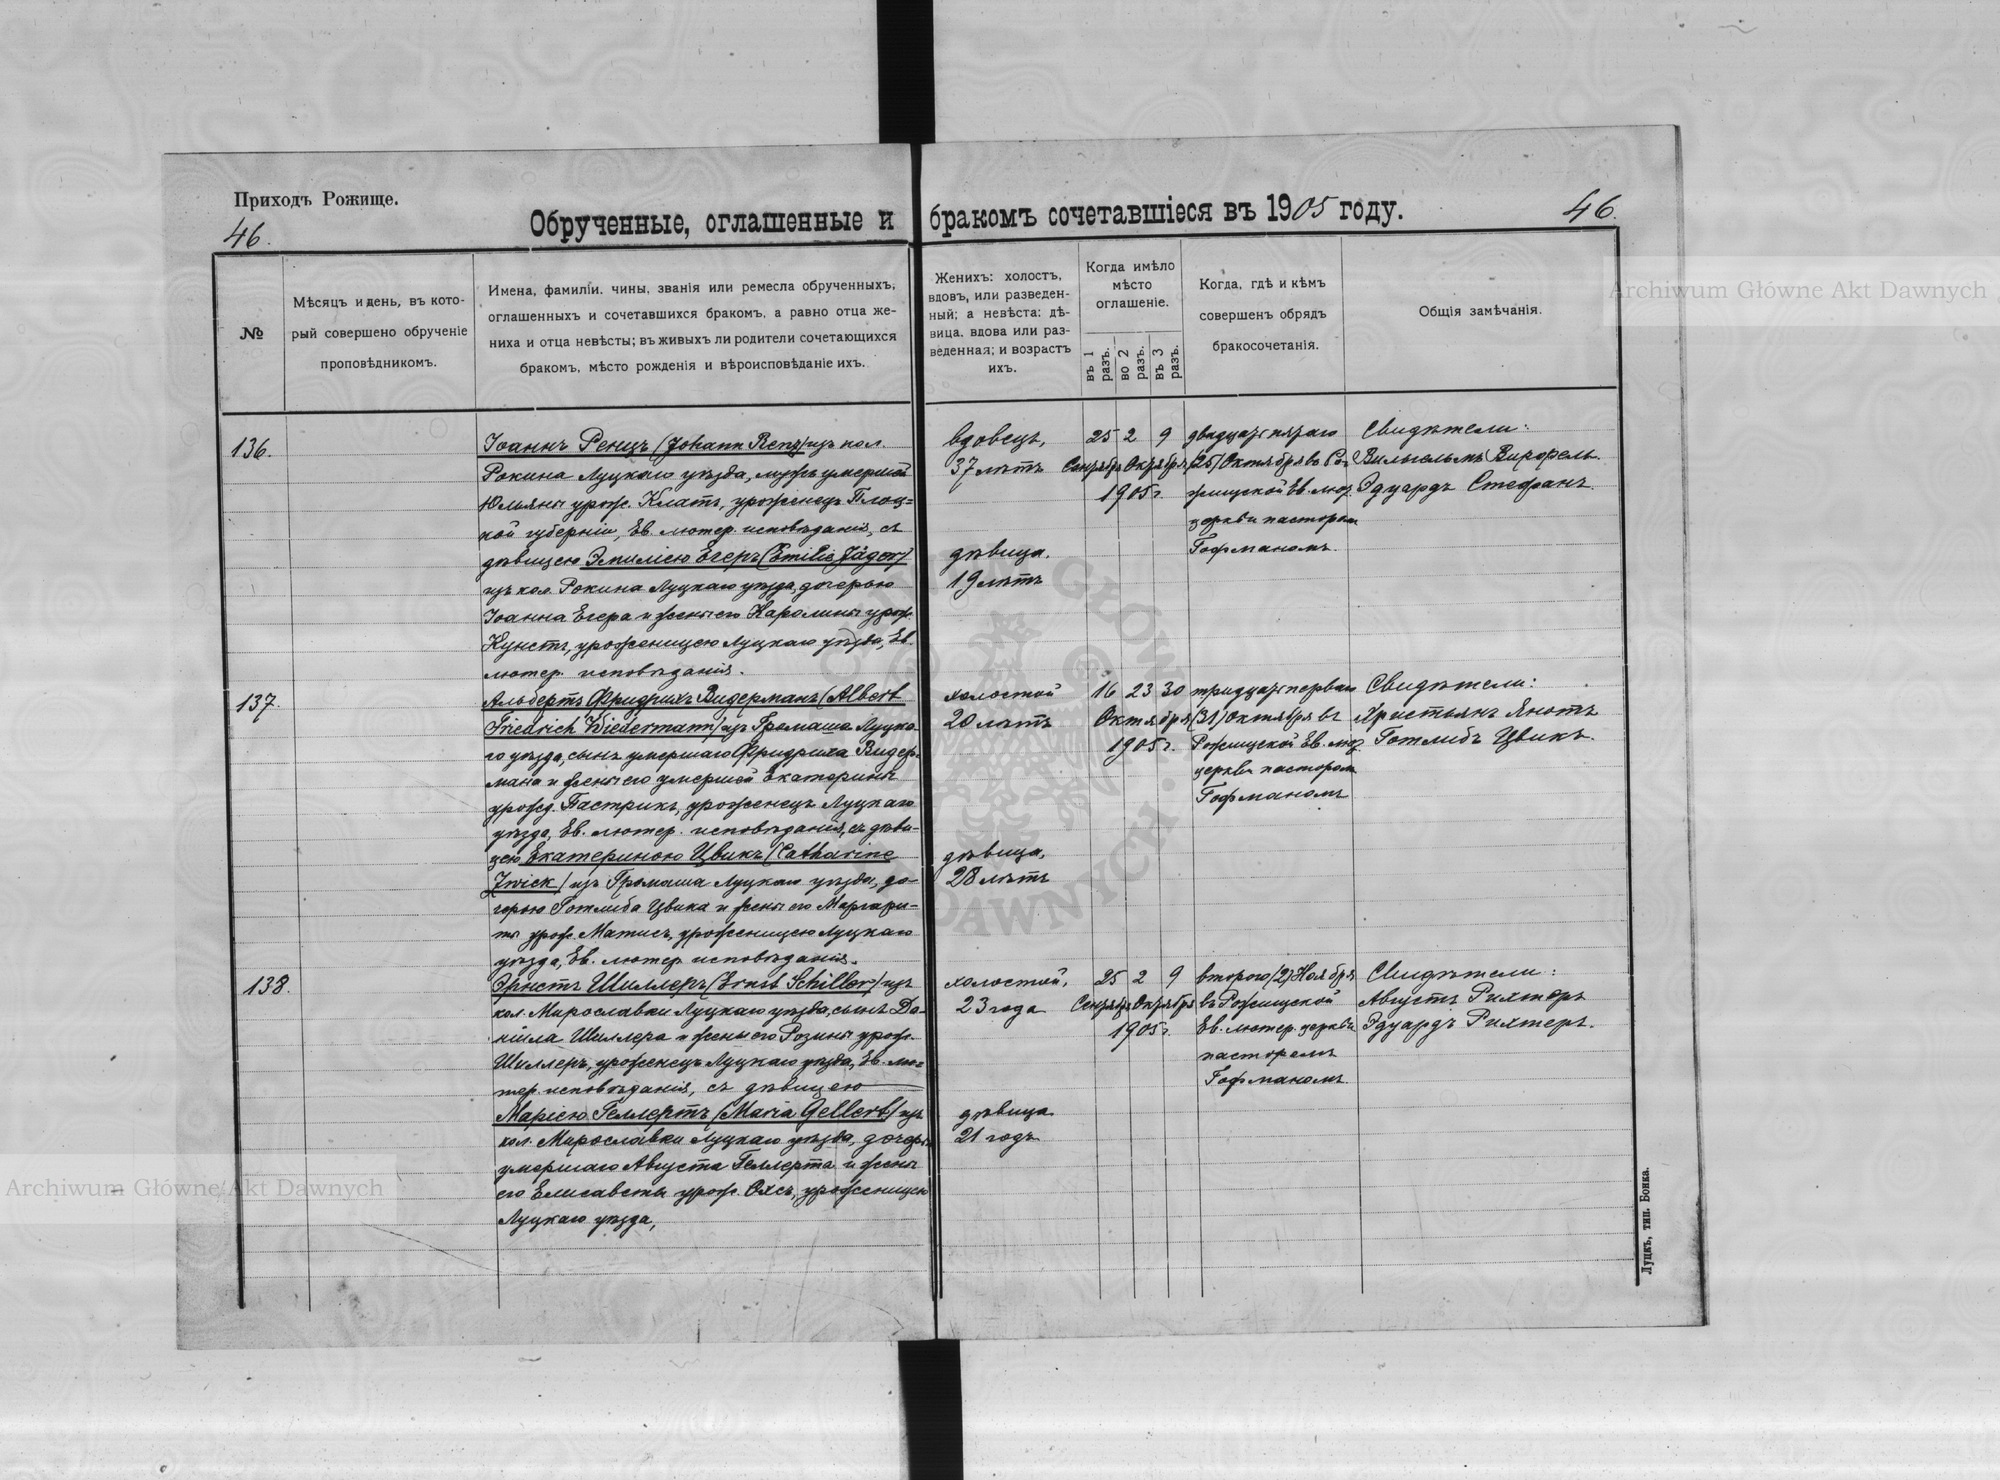 Приходъ Рожище.
46.
Обрученные, оглашенные и бракомъ сочетавшіеся въ 1905 году.
46.
№
Мѣсяцъ и день, въ кото-
рый совершено обрученіе
проповѣдникомъ.
Имена, фамиліи, чины, званія или ремесла обрученныхъ,
оглашенныхъ и сочетавшихся бракомъ, а равно отца же-
ниха и отца невѣсты; въ живыхъ ли родители сочетающихся
бракомъ, мѣсто рожденія и вѣроисповѣданіе ихъ.
Женихъ: холостъ,
вдовъ, или разведен-
ный; а невѣста: дѣ-
вица, вдова или раз-
веденная; и возрастъ
ихъ.
Когда имѣло
мѣсто
оглашеніе.
въ 1 разъ.
во 2 разъ.
въ 3 разъ.
Когда, гдѣ и кѣмъ
совершенъ обрядъ
бракосочетанія.
Общія замѣчанія.
136.
Іоаннъ Ренцъ (Johann Renz) изъ кол.
Рокина Луцкаго уѣзда, мужъ умершей
Юльяны урож. Клатъ, уроженецъ Плоц-
кой губерніи, Ев. лютер. исповѣданія, съ
дѣвицею Эмиліею Егеръ (Emilie Jäger)
изъ кол. Рокина Луцкаго уѣзда, дочерью
Іоанна Егера и жены его Каролины урож.
Кунстъ, уроженицею Луцкаго уѣзда, Ев.
лютер. исповѣданія.
вдовецъ,
37 лѣтъ
дѣвица.
19 лѣтъ
25 2 9
Сентября Октября
1905 г.
двадцать пятаго
(25) Октября въ Ро-
жищской Ев. лют.
церкви пасторомъ
Гофманомъ.
Свидѣтели:
Вильгельмъ
Эдуардъ Стефанъ.
137.
Альбертъ Фридрихъ Видерманъ (Albert
Friedrich Wiedermann) изъ Громаша Луцка-
го уѣзда, сынъ умершаго Фридриха Видер-
мана и жены его умершей Екатерины
урожд. Гастрикъ, уроженецъ Луцкаго
уѣзда, Ев. лютер. исповѣданія, съ дѣви-
цею Екатериною Цвикъ (Catharine
Zwick) изъ Громаша Луцкаго уѣзда, до-
черью Готлиба Цвика и жены его Маргари-
ты урож. Матисъ, уроженицею Луцкаго
уѣзда, Ев. лютер. исповѣданія.
холостой
20 лѣтъ
дѣвица,
28 лѣтъ
16 23 30
Октября
1905 г.
тридцать перваго
(31) Октября въ
Рожищской Ев. лют.
церкви пасторомъ
Гофманомъ
Свидѣтели:
Христьянъ Янотъ
Готлибъ Цвикъ.
138.
Эрнстъ Шиллеръ (Ernst Schiller) изъ
кол. Мирославки Луцкаго уѣзда, сынъ Да-
ніила Шиллера и жены его Розины урож.
Шиллеръ, уроженецъ Луцкаго уѣзда, Ев. лю-
тер. исповѣданія, съ дѣвицею
Маріею Геллертъ (Maria Gellert) изъ
кол. Мирославки Луцкаго уѣзда, дочерью
умершаго Августа Геллерта и жены
его Елисаветы урож. Оксъ, уроженицею
Луцкаго уѣзда,
холостой,
23 года
дѣвица
21 годъ
25 2 9
Сентября Октября
1905 г.
второго (2) Ноября
въ Рожищской
Ев. лютер. церкви
пасторомъ
Гофманомъ.
Свидѣтели:
Августъ Рихтеръ
Эдуардъ Рихтеръ.
Луцкъ, тип. Бонка.
Archiwum Główne Akt Dawnych
Archiwum Główne Akt Dawnych